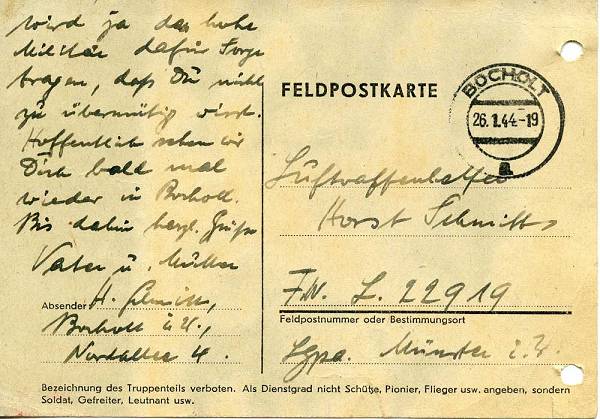 wird ja das hohe
Militär dafür Sorge
tragen, daß Du nicht
zu übermütig wirst.
Hoffentlich sehen wir
Dich bald mal
wieder in Bocholt.
Bis dahin herzl. Grüße
Vater u. Mutter
Absender: H. Schmitt,
Bocholt i. W.,
Nordallee 4.
FELDPOSTKARTE
BOCHOLT
26.1.44-19
a
Luftwaffenhelfer
Horst Schmitt,
F.N. L. 22919
Feldpostnummer oder Bestimmungsort
Lgpa. Münster i. W.
Bezeichnung des Truppenteils verboten. Als Dienstgrad nicht Schütze, Pionier, Flieger usw. angeben, sondern
Soldat, Gefreiter, Leutnant usw.